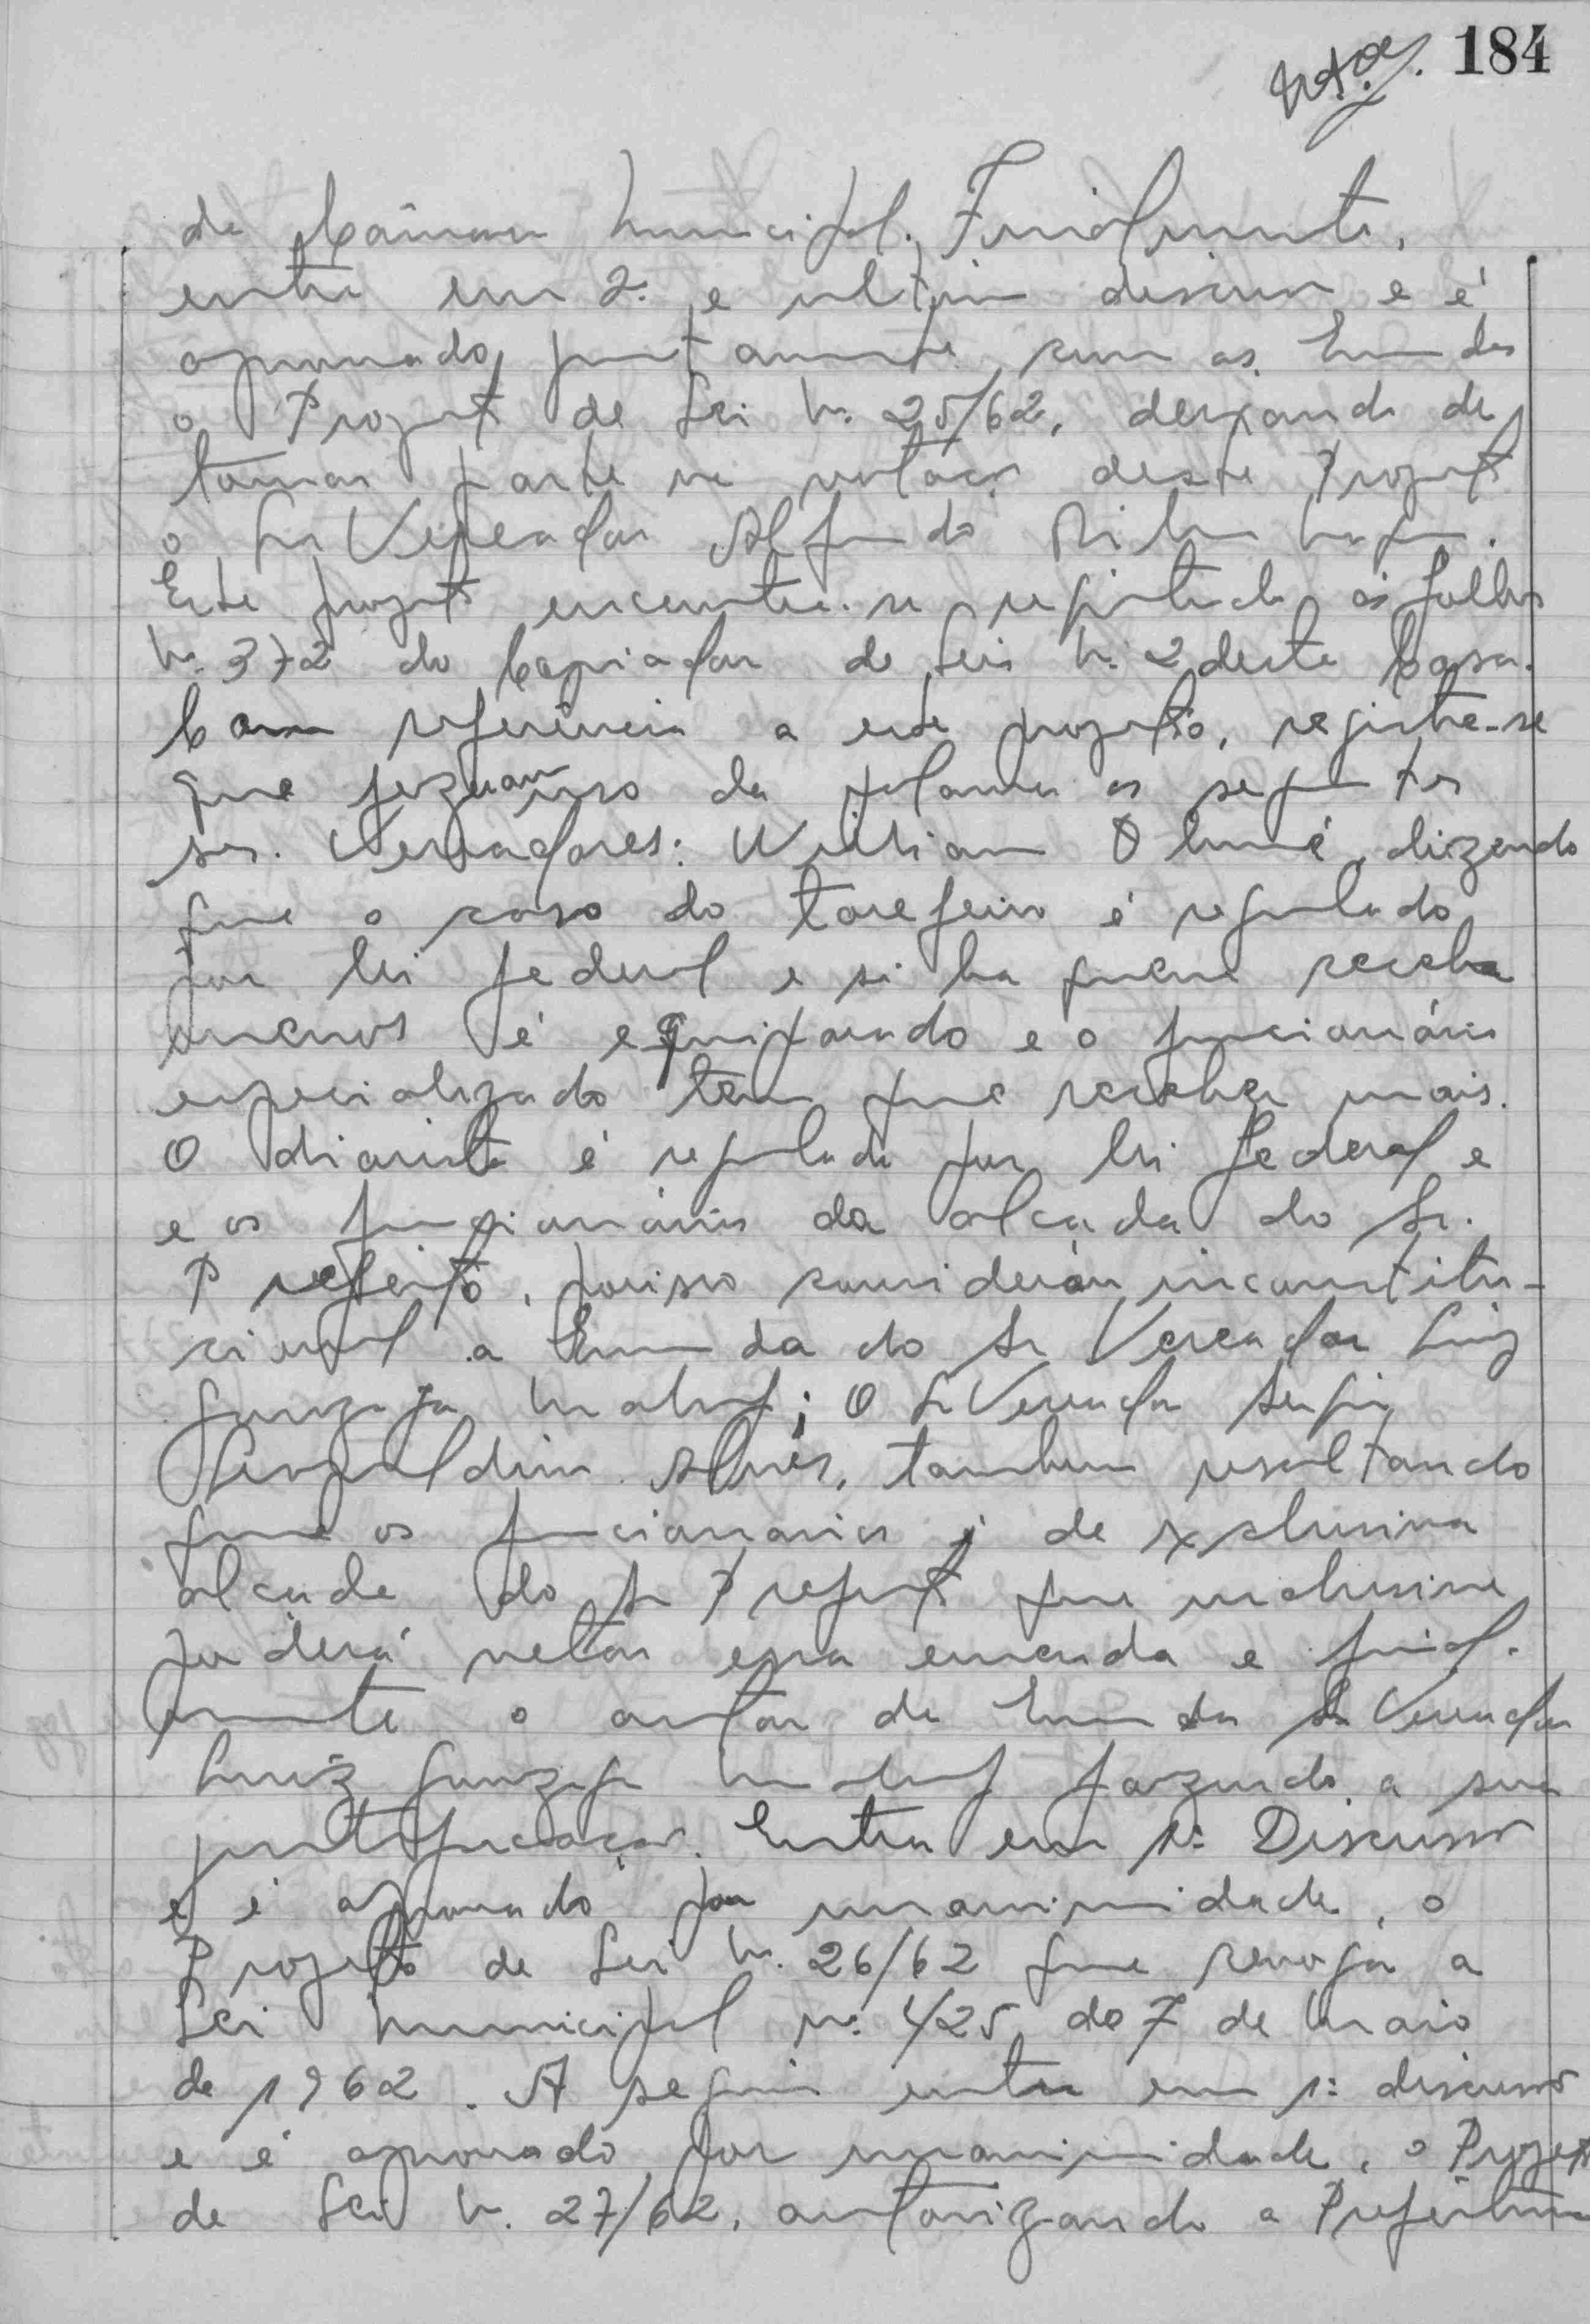 184
da Câmara Municipal. Finalmente,
entra em 2ª e ultima discussão e é
aprovado, juntamente com as Emendas
o Projeto de Lei Nº 25/62, deixando de
tomar parte na votação deste Projeto
o Sr Vereador Alfredo
Este projeto encontra-se registrado ás folhas
Nº 372 do Copiador de Leis Nº 2 desta Casa.
Com referência a este projeto, registra-se
que fizeram uso da palavra os seguintes
srs. Vereadores: William dizendo
que o caso do tarefeiro é regulado
por lei federal e si ha quem receba
menos é equiparado e o funcionário
especializado tem que receber mais.
O diarista é regulado por lei federal e
e os funcionários da alçada do Sr.
Prefeito, porisso considerou inconstitu-
cional a Emenda do Sr Vereador Luiz
Gonzaga Maluf; O Sr Vereador Sergio
Leopoldino Alves, tambem resaltando
que os funcionarios é de exclusiva
alçada do Sr Prefeito que inclusive
poderá vetar essa emenda e final-
mente o autor da Emenda Sr Vereador
Luiz Gonzaga Maluf fazendo a sua
justificação. Entra em 1ª Discussão
e é aprovado por unanimidade, o
Projeto de Lei Nº 26/62 que revoga a
Lei Municipal nº 425 de 7 de Maio
de 1962. A seguir entra em 1ª discussão
e é aprovado por unanimidade, o Projeto
de Lei Nº 27/62, autorizando a Prefeitura